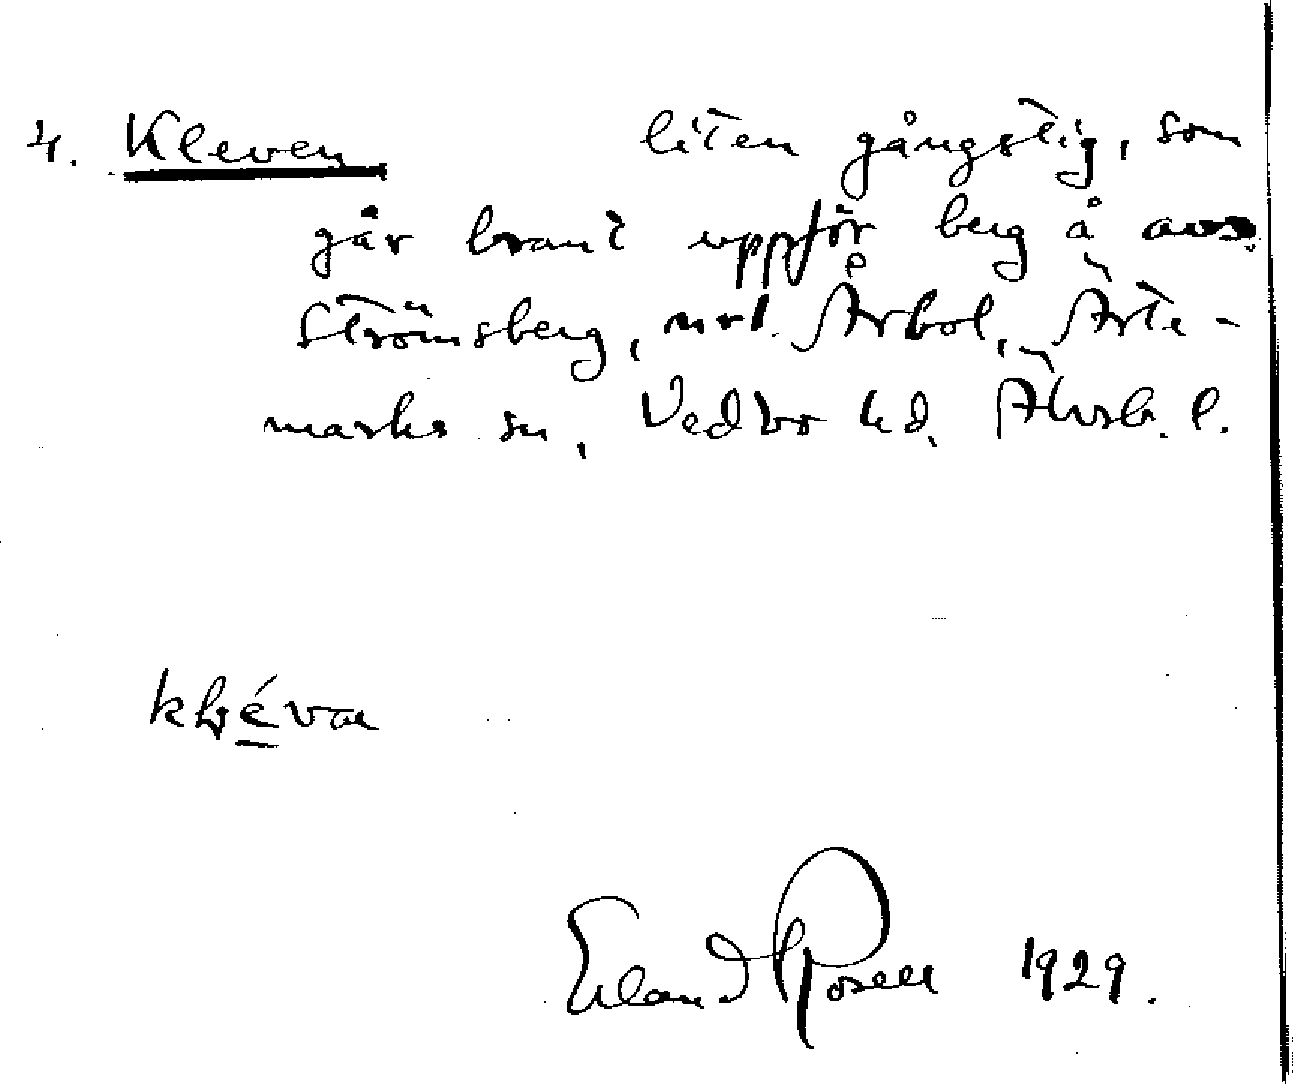 4. Kleven liten gångstig, som
går brant uppför berg å avs.
Strömsberg, nrl. Årbol, Ärte-
marks sn, Vedbo hd. Älvsb. l.
Erland Rosell 1929.